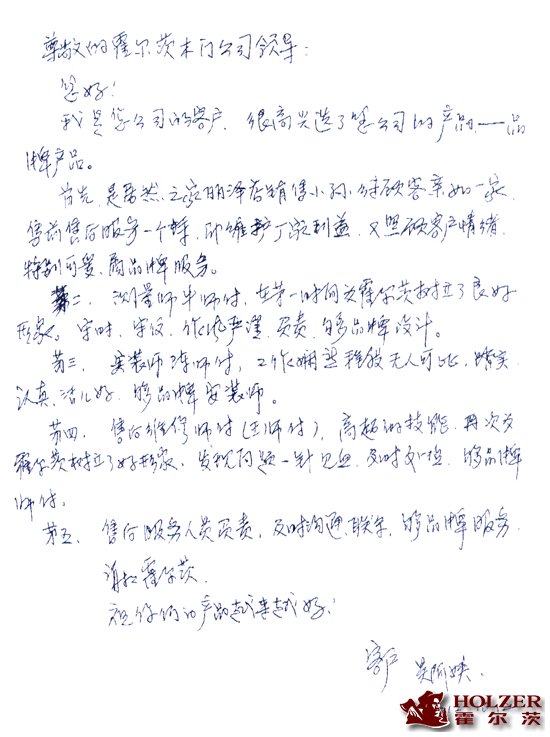 尊敬的霍尔茨木门公司领导：
您好！
我是您公司的客户，很高兴选了您公司的产品——品
牌产品。
首先，是居然之家丽泽店销售小孙，待顾客亲如一家，
售前售后服务一个样，即维护厂家利益，又照顾客户情绪，
特别可爱，够品牌服务。
第二，测量师牛师付，在第一时间为霍尔茨树立了良好
形象。守时，守仪，作风严谨，负责，够品牌设计。
第三，安装师漆师付，工作娴熟程度无人可比，踏实
认真，活儿好，够品牌安装师。
第四，售后维修师付（王师付），高超的技能，再次为
霍尔茨树立了好形象，发现问题一针见血，及时，够品牌
师付。
第五，售后服务人员负责，及时沟通、联系，够品牌服务。
谢谢霍尔茨
祝你们的产品越来越好！
客户
HOLZER
霍尔茨